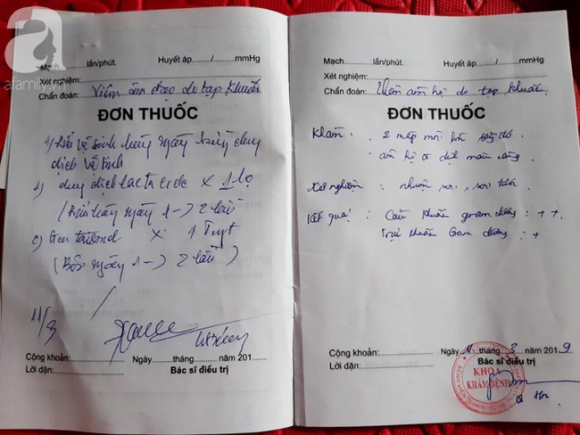 a
afamily.vn
Mạch........lần/phút. Huyết áp....../......mmHg
Xét nghiệm:
Chẩn đoán: Viêm âm đạo do tạp khuẩn
ĐƠN THUỐC
vệ sinh hàng ngày dung
dịch vệ sinh
dung dịch lactacide x 1 lọ
ngày 1 -> 2 lần)
x 1 Tuyt
(Bôi ngày 1 -> 2 lần)
11/3
Cộng khoản: Ngày......tháng......năm 201
Lời dặn: Bác sĩ điều trị
Mạch........lần/phút. Huyết áp....../......mmHg
Xét nghiệm:
Chẩn đoán: Viêm âm hộ do tạp khuẩn
ĐƠN THUỐC
Khám: 2 mép môi đỏ
âm hộ màu
Xét nghiệm: nhuộm soi, soi tươi
Kết quả: Cầu khuẩn gram dương: ++
Trực khuẩn Gram dương: +
Cộng khoản: Ngày 11 tháng 3 năm 2019
Lời dặn: Bác sĩ điều trị
KHOA
KHÁM BỆNH